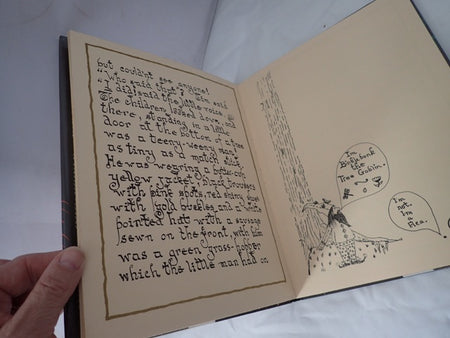 but couldn't see anyone!
"Who said that?" Tim said
"I did," said the little voice.
The children looked down, and
there, standing in a little
door at the bottom of a tree
was a teeny-weeny man
as tiny as a match stick
He was wearing a butter-cup
yellow jacket, black trousers
with pink spots, red shiny shoes
with gold buckles and a white
pointed hat with a sausage
sewn on the front, with him
was a green grass-hopper
which the little man had on
I'm
Binklebonk
the
Tree Goblin.
I'm
not.
I'm a
Flea.